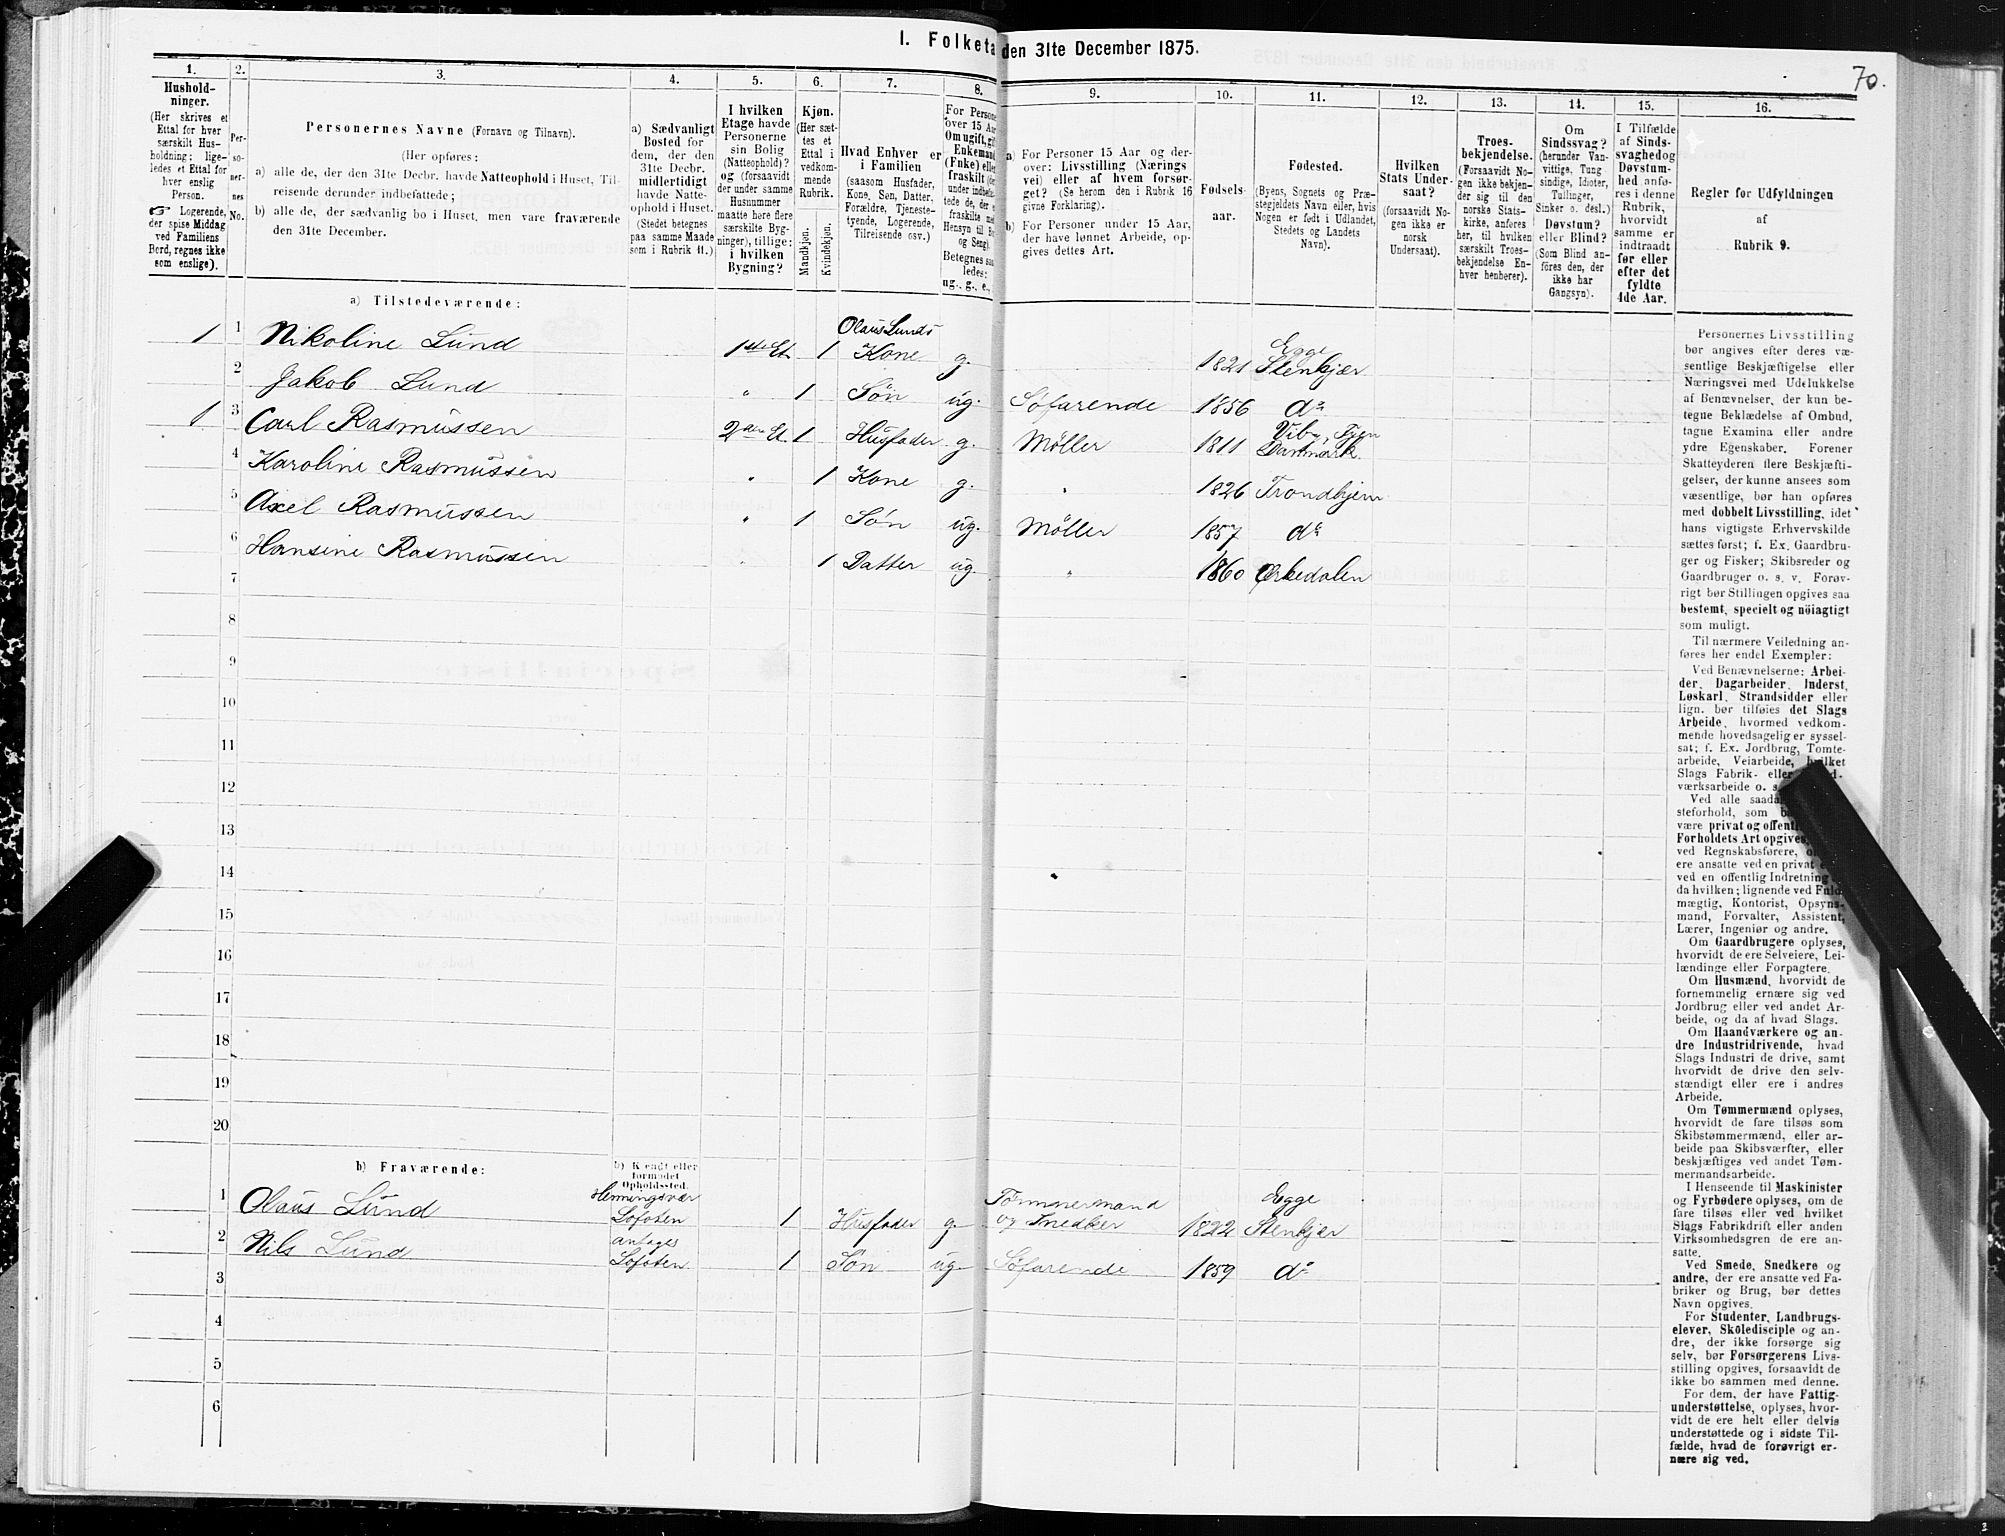 70.
I. Folketa den 31te December 1875.
1. 2. 3. 4. 5. 6. 7. 8. 9. 10. 11. 12. 13. 14. 15. 16.
Hushold-
ninger.
(Her skrives et
Ettal for hver
særskilt Hus-
holdning; lige-
ledes et Ettal for
hver enslig
Person.
☞ Logerende,
der spise Middag
ved Familiens
Bord, regnes ikke
som enslige).
Per-
so-
ner-
nes
No.
Personernes Navne (Fornavn og Tilnavn).
(Her opføres:
a) alle de, der den 31te Decbr. havde Natteophold i Huset, Til-
reisende derunder indbefattede;
b) alle de, der sædvanlig bo i Huset, men vare fraværende
den 31te December.
a) Sædvanligt
Bosted for
dem, der den
31te Decbr.
midlertidigt
havde Natte-
ophold i Huset.
(Stedet betegnes
paa samme Maade
som i Rubrik 11.)
I hvilken
Etage havde
Personerne
sin Bolig
(Natteophold)?
og (forsaavidt
der under samme
Husnummer
maatte høre flere
særskilte Byg-
ninger), tillige:
i hvilken
Bygning?
Kjøn.
(Her sæt-
tes et
Ettal i
vedkom-
mende
Rubrik.
Mandkjøn.
Kvindekjøn.
Hvad Enhver er
i Familien
(saasom Husfader,
Kone, Søn, Datter,
Forældre, Tjeneste-
tyende, Logerende,
Tilreisende osv.)
For Persone
over 15 Aar
Om ugift, gif
Enkemand
(Fnke) elle
fraskilt (de
under indbefat-
tede de, der e
fraskilte med
Hensyn til Bo
og Seng).
Betegnes saa
ledes:
ug., g., e.,
a) For Personer 15 Aar og der-
over: Livsstilling (Nærings
vei) eller af hvem forsør-
get? (Se herom den i Rubrik 16
givne Forklaring).
b) For Personer under 15 Aar,
der have lønnet Arbeide, op-
gives dettes Art.
Fødsels-
aar.
Fødested.
(Byens, Sognets og Præ-
stegjeldets Navn eller, hvis
Nogen er født i Udlandet,
Stedets og Landets
Navn).
Hvilken
Stats Under-
saat?
(forsaavidt No-
gen ikke er
norsk
Undersaat).
Troes-
bekjendelse.
(Forsaavidt No-
gen ikke bekjen-
der sig til den
norske Stats-
kirke, anføres
her, til hvilken
særskilt Troes-
bekjendelse En-
hver henhører).
Om
Sindssvag?
(herunder Van-
vittige, Tung
sindige, Idioter,
Tullinger,
Sinker o. desl.)
Døvstum?
eller Blind?
(Som Blind an-
føres den, der
ikke har
Gangsyn).
I Tilfælde
af Sinds-
svaghedog
Døvstum-
hed anfø-
res i denne
Rubrik,
hvorvidt
samme er
indtraadt
før eller
efter det
fyldte
4de Aar.
Regler for Udfyldningen
af
Rubrik 9.
a) Tilstedeværende:
Olaus Lunds Egge
1 1 Nikoline Lund 1ste Et. 1 Kone g. 1821 Stenkjær
2 Jakob Lund " 1 Søn ug. Søfarende 1856 do
1 3 Carl Rasmussen 2den Et. 1 Husfader g. Møller 1811 Viby, Fyen
Danmark.
4 Karoline Rasmussen " 1 Kone g. " 1826 Trondhjem
5 Axel Rasmussen " 1 Søn ug. Møller 1857 do
6 Hansine Rasmussen " 1 Datter ug. " 1860 Ørkedalen
7
8
9
10
11
12
13
14
15
16
17
18
19
20
b) Fraværende:
b) Kjendt eller
formodet
Opholdssted.
1 Olaus Lund Henningsvær
Lofoten 1 Husfader g. Tømmermand
og Snedker 1822 Egge
Stenkjær
2 Nils Lund antages
Lofoten 1 Søn ug. Søfarende 1859 do
3
4
5
6
Personernes Livsstilling
bør angives efter deres væ-
sentlige Beskjæftigelse eller
Næringsvei med Udelukkelse
af Benævnelser, der kun be-
tegne Beklædelse af Ombud,
tagne Examina eller andre
ydre Egenskaber. Forener
Skatteyderen flere Beskjæfti-
gelser, der kunne ansees som
væsentlige, bør han opføres
med dobbelt Livsstilling, idet
hans vigtigste Erhvervskilde
sættes først; f. Ex. Gaardbru-
ger og Fisker; Skibsreder og
Gaardbruger o. s. v. Forøv-
rigt bør Stillingen opgives saa
bestemt, specielt og nöiagtigt
som muligt.
Til nærmere Veiledning an-
føres her endel Exempler:
Ved Benævnelserne: Arbei-
der, Dagarbeider, Inderst,
Løskarl, Strandsidder eller
lign. bør tilføies det Slags
Arbeide, hvormed vedkom-
mende hovedsagelig er syssel-
sat; f. Ex. Jordbrug, Tomte-
arbeide, Veiarbeide, hvilket
Slags Fabrik- eller
værksarbeide o. s.
Ved alle saada
steforhold, som
være privat og offent
Forholdets Art opgives,
ved Regnskabsførere,
ere ansatte ved en privat
ved en offentlig Indretning
da hvilken; lignende ved Fuld-
mægtig, Kontorist, Opsyns-
mand, Forvalter, Assistent,
Lærer, Ingeniør og andre.
Om Gaardbrugere oplyses,
hvorvidt de ere Selveiere, Lei-
lændinge eller Forpagtere.
Om Husmænd, hvorvidt de
fornemmelig ernære sig ved
Jordbrug eller ved andet Ar-
beide, og da af hvad Slags.
Om Haandværkere og an-
dre Industridrivende, hvad
Slags Industri de drive, samt
hvorvidt de drive den selv-
stændigt eller ere i andres
Arbeide.
Om Tømmermænd oplyses,
hvorvidt de fare tilsøs som
Skibstømmermænd, eller ar-
beide paa Skibsværfter, eller
beskjæftiges ved andet Tøm-
mermandsarbeide.
I Henseende til Maskinister
og Fyrbødere oplyses, om de
fare tilsøs eller ved hvilket
Slags Fabrikdrift eller anden
Virksomhedsgren de ere an-
satte.
Ved Smede, Snedkere og
andre, der ere ansatte ved Fa-
briker og Brug, bør dettes
Navn opgives.
For Studenter, Landbrugs-
elever, Skoledisciple og an-
dre, der ikke forsørge sig
selv, bør Forsørgerens Livs-
stilling opgives, forsaavidt de
ikke bo sammen med denne.
For dem, der have Fattig-
understøttelse, oplyses, hvor-
vidt de ere helt eller delvis
understøttede og i sidste Til-
fælde, hvad de forøvrigt er-
nære sig ved.